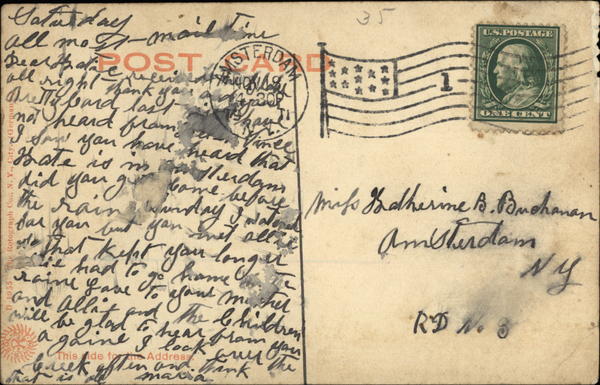 Saturday
all most - mail time
POST CARD
Dear Katie
all right thank you
card last
not heard from you since
I saw you have heard that
Kate is in Amsterdam
did you get home before
the rain Sunday I
for you but you
that kept you longer
had to go home in the
rain Love to your Mother
and Allie and the Children
will be glad to hear from you
again I look over the
Creek often and think
that is all Maria
This side for the Address.
Rotograph Co., N. Y. City
AMSTERDAM
N.Y.
U.S. POSTAGE
ONE CENT
1
35
Miss Katherine B. Buchanan
Amsterdam
NY
RD No. 3